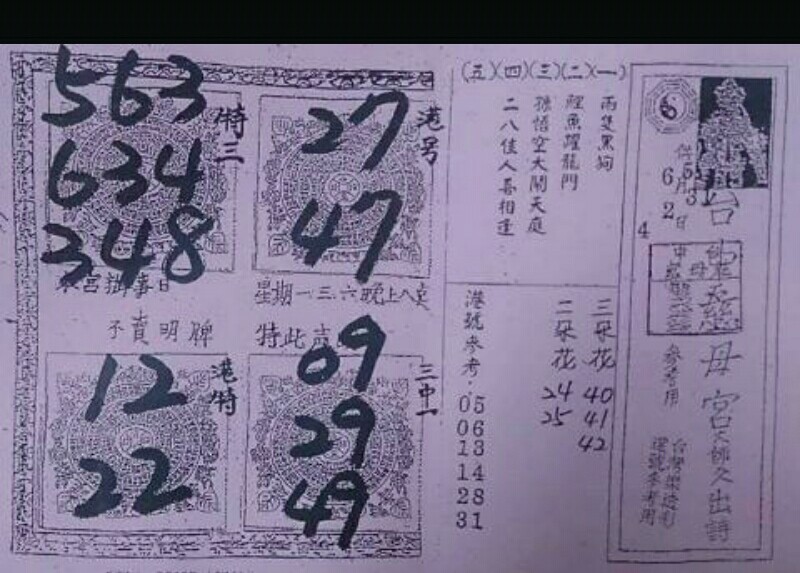 563
634
348
特三
27
47
港号
本宮辦事日
星期一三六晚上八点
不賣明牌
特此声
12
22
港特
09
29
49
三中一
(五)(四)(三)(二)(一)
兩隻黑狗
鯉魚躍龍門
孫悟空大鬧天庭
二八佳人喜相逢
三朵花 40 41 42
二朵花 24 25
港號參考:
05
06
13
14
28
31
6月2日
4
母宮
出詩
參考用
港號參考用